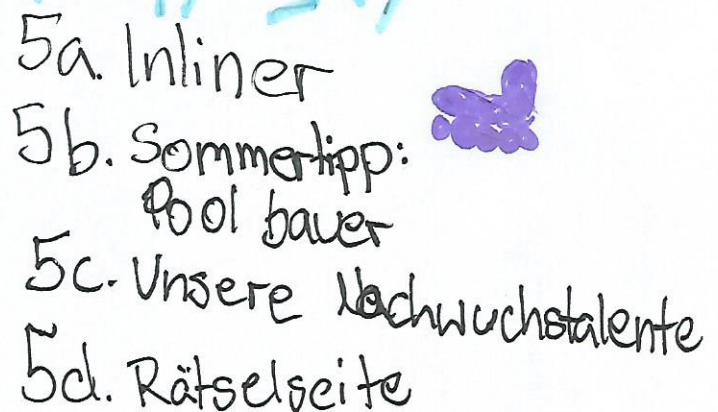 5a. Inliner
5b. Sommertipp:
Pool bauer
5c. Unsere Nachwuchstalente
5d. Rätselseite